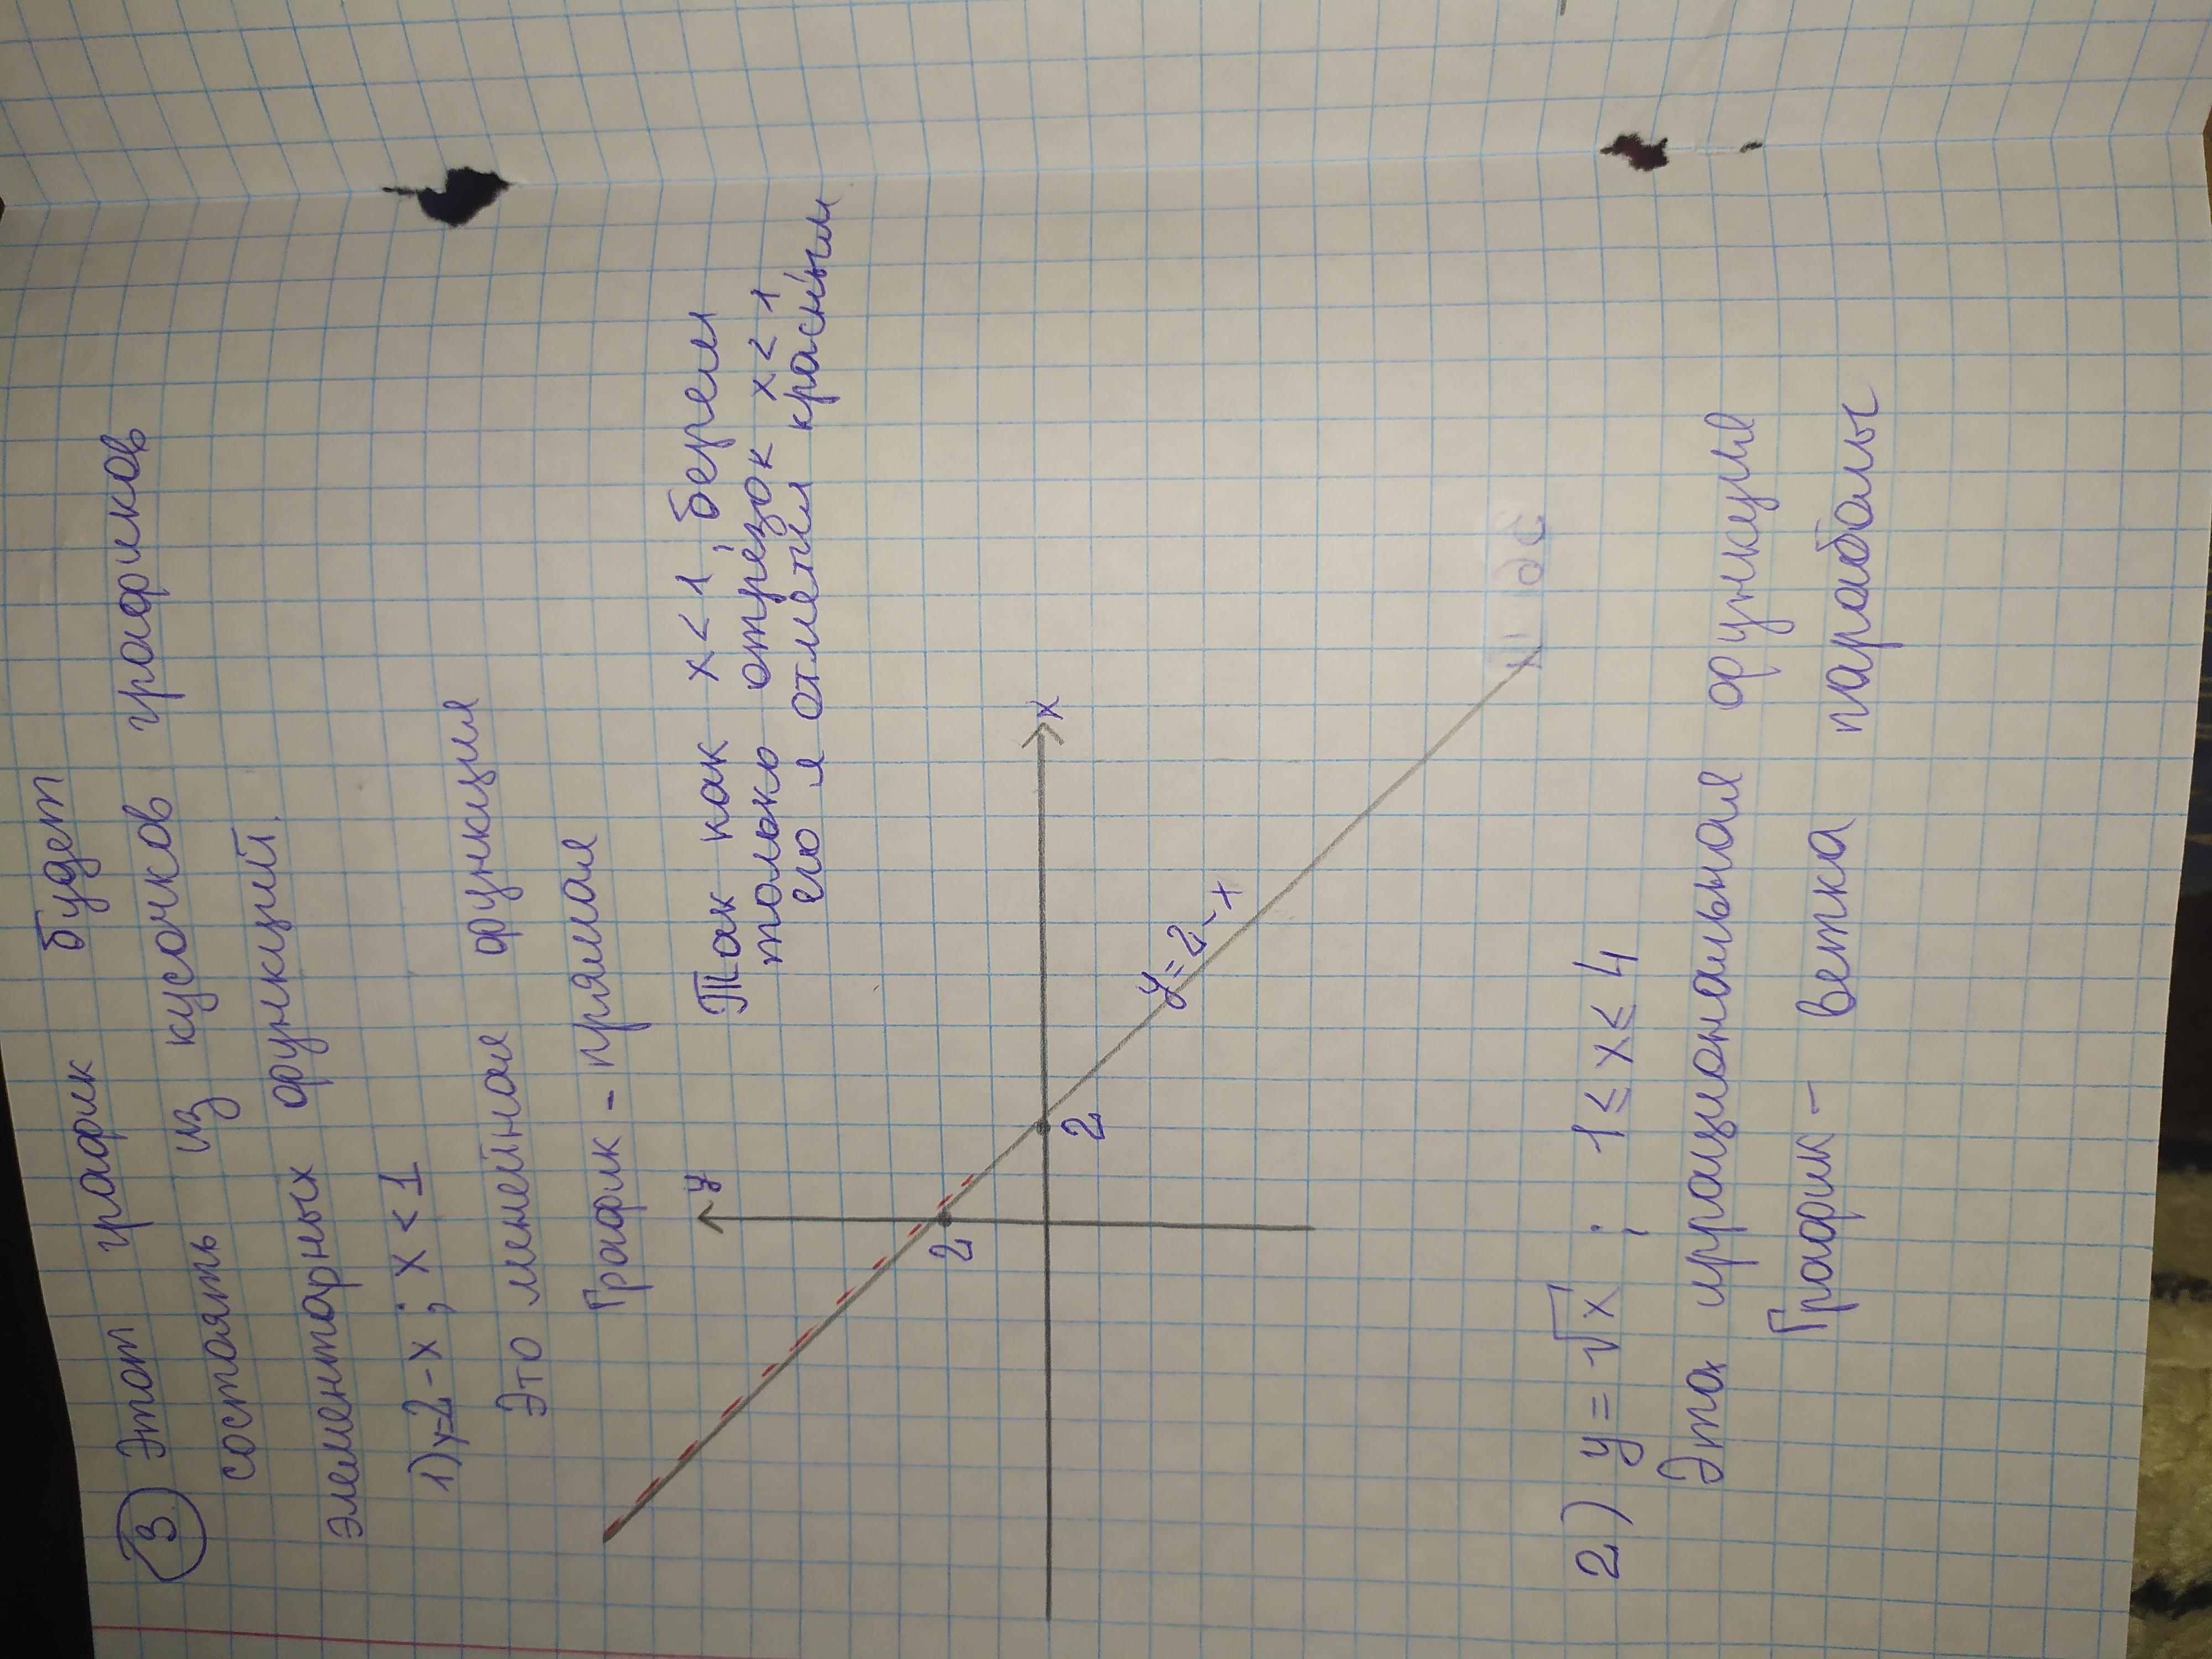 3 Этот график будет
состоять из кусочков графиков
элементарных функций.
1) y=2-x ; x < 1
Это линейная функция
График - прямая
Так как x < 1, берем
только отрезок x < 1
его я отметил красным
y
x
2
2
y=2-x
2) y = √x ; 1 ≤ x ≤ 4
Эта иррациональная функция
График - ветка параболы